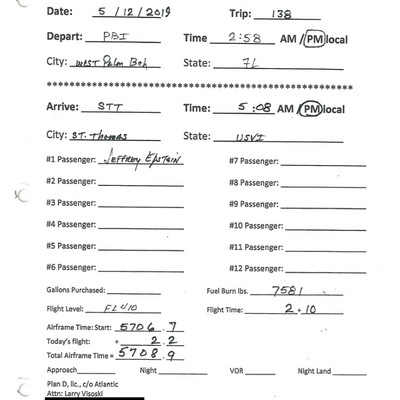 Date: 5/12/2019 Trip: 138
Depart: PBI Time 2:58 AM / PM local
City: West Palm Bch State: FL
**************************************************
Arrive: STT Time: 5:08 AM / PM local
City: St. Thomas State: USVI
#1 Passenger: Jeffrey Epstein #7 Passenger:
#2 Passenger: #8 Passenger:
#3 Passenger: #9 Passenger:
#4 Passenger: #10 Passenger:
#5 Passenger: #11 Passenger:
#6 Passenger: #12 Passenger:
Gallons Purchased: Fuel Burn lbs. 7581
Flight Level: FL410 Flight Time: 2+10
Airframe Time: Start: 5706.7
Today's flight: + 2.2
Total Airframe Time = 5708.9
Approach Night VOR Night Land
Plan D, llc., c/o Atlantic
Attn: Larry Visoski